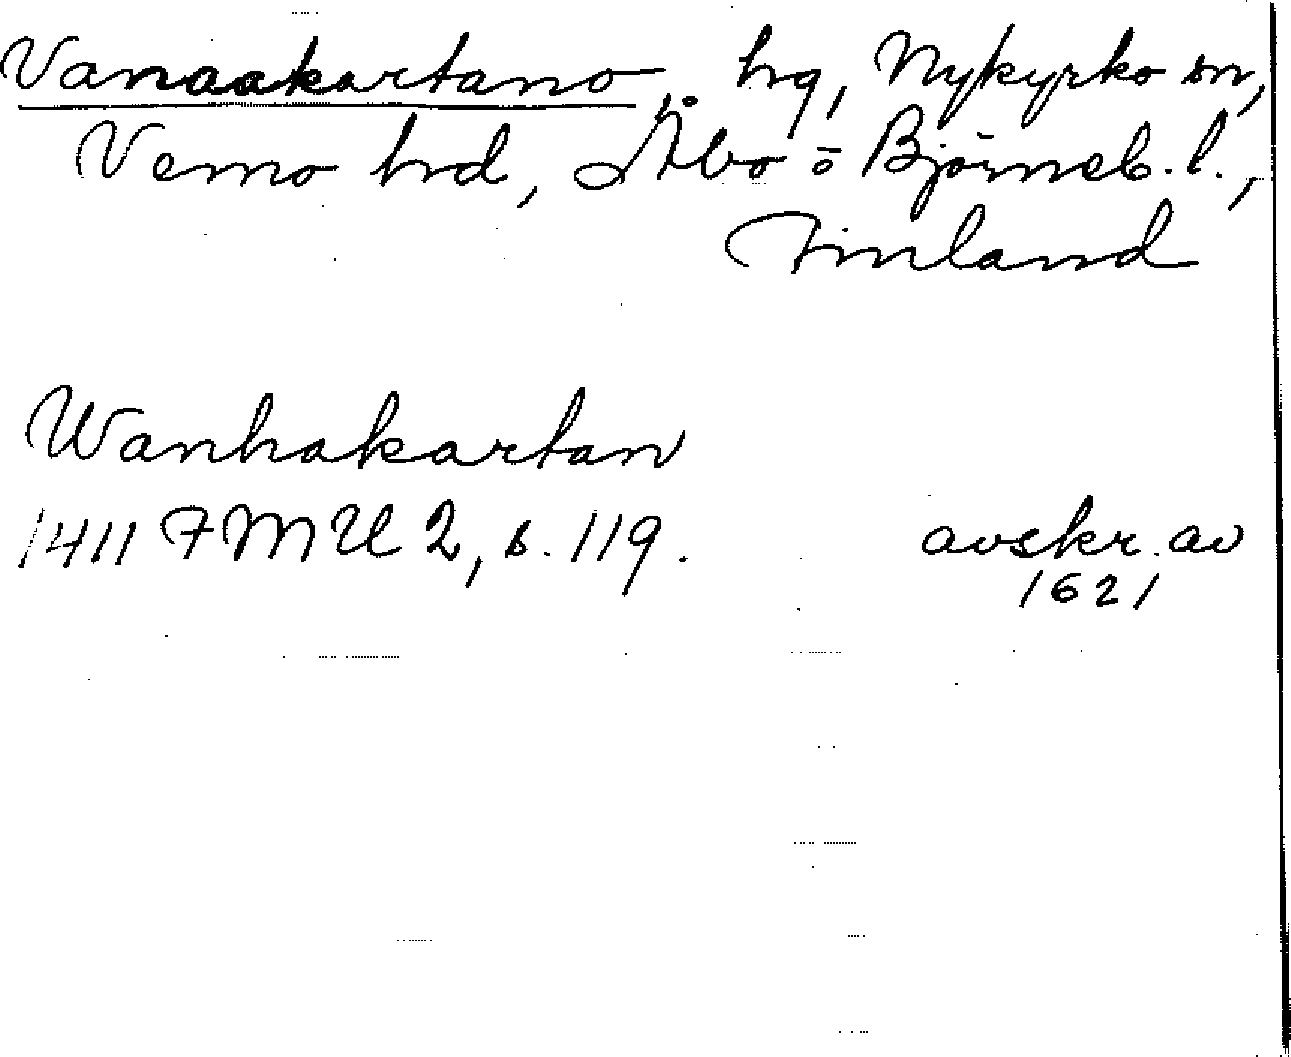 Vanaakartano, hg, Nykyrko sn,
Vemo hd, Åbo o Björneb. l.,
Finland
Wanhakartan
1411 FMU 2, s. 119. avskr. av
1621